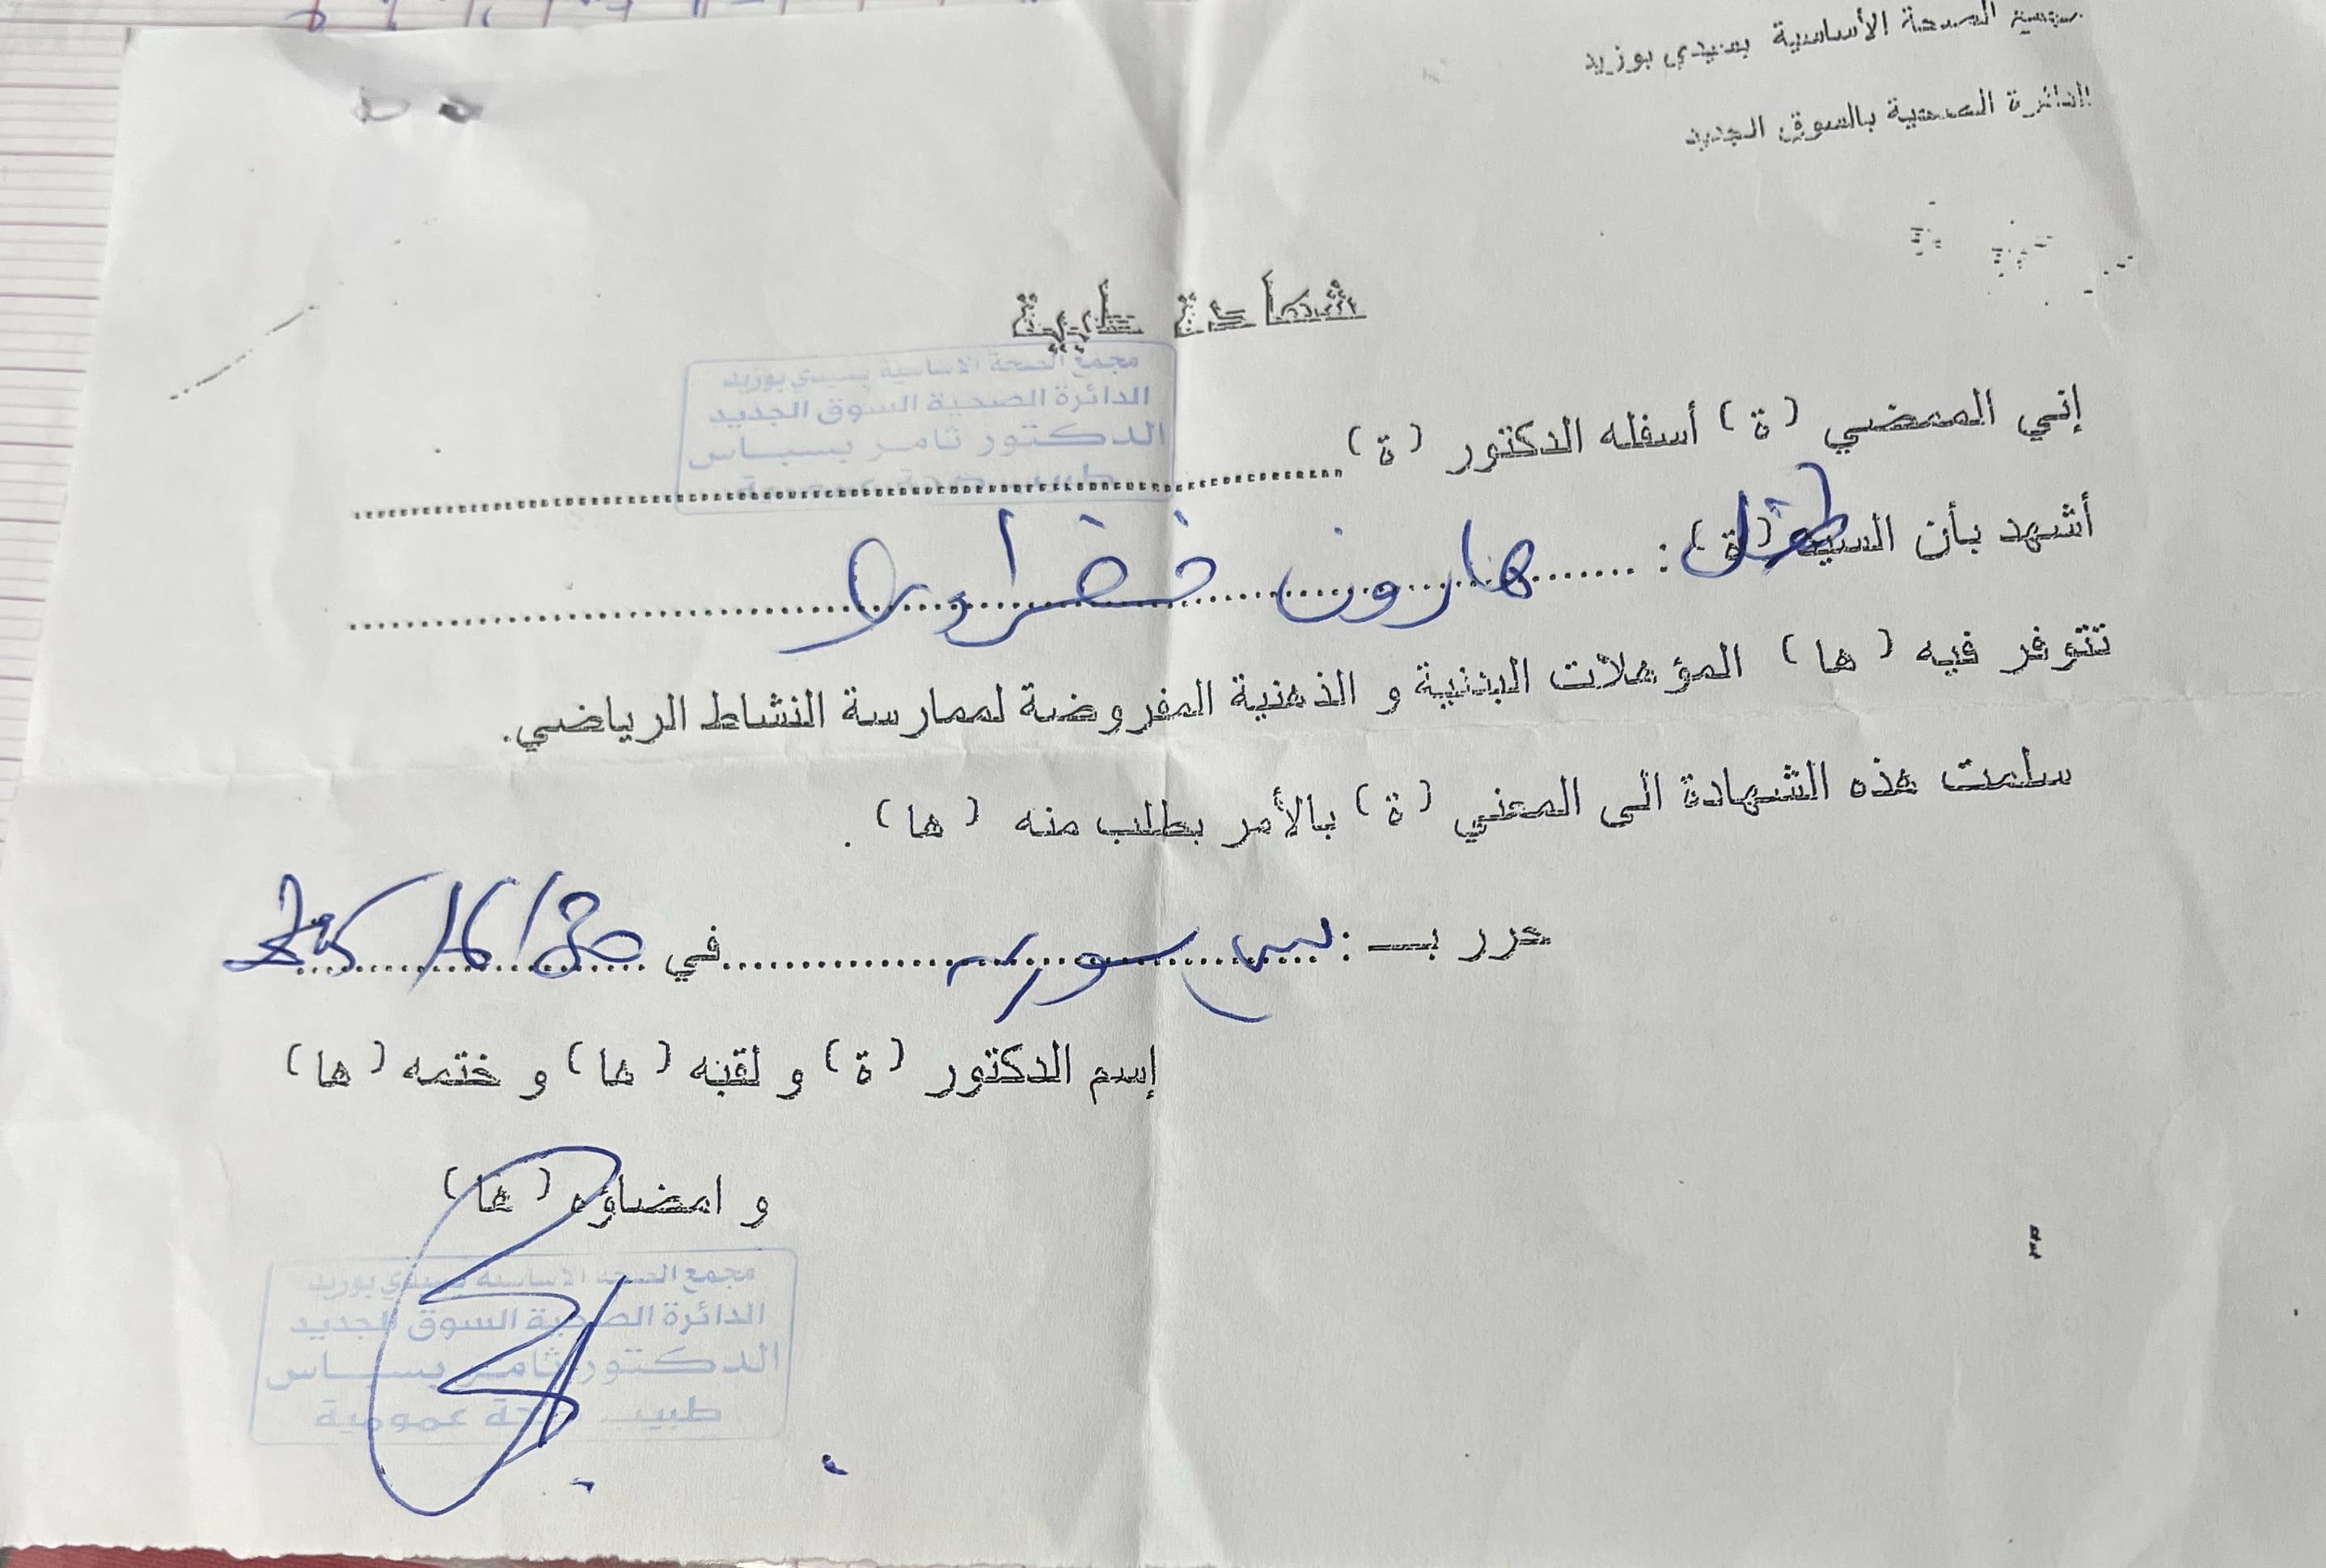 مجمع الصحة الأساسية بسيدي بوزيد
الدائرة الصحية بالسوق الجديد
شهادة طبية
مجمع الصحة الاساسية بسيدي بوزيد
الدائرة الصحية السوق الجديد
الدكتور ثامر بسباس
إني الممضي (ة) أسفله الدكتور (ة)
أشهد بأن السيد (ة) : الطفل هارون خضراوي
تتوفر فيه (ها) المؤهلات البدنية و الذهنية المفروضة لممارسة النشاط الرياضي.
سلمت هذه الشهادة الى المعني (ة) بالأمر بطلب منه (ها) .
حرر بـ : في
إسم الدكتور (ة) و لقبه (ها) و ختمه (ها)
و امضاؤه (ها)
مجمع الصحة الاساسية بسيدي بوزيد
الدائرة الصحية السوق الجديد
الدكتور ثامر بسباس
طبيب صحة عمومية